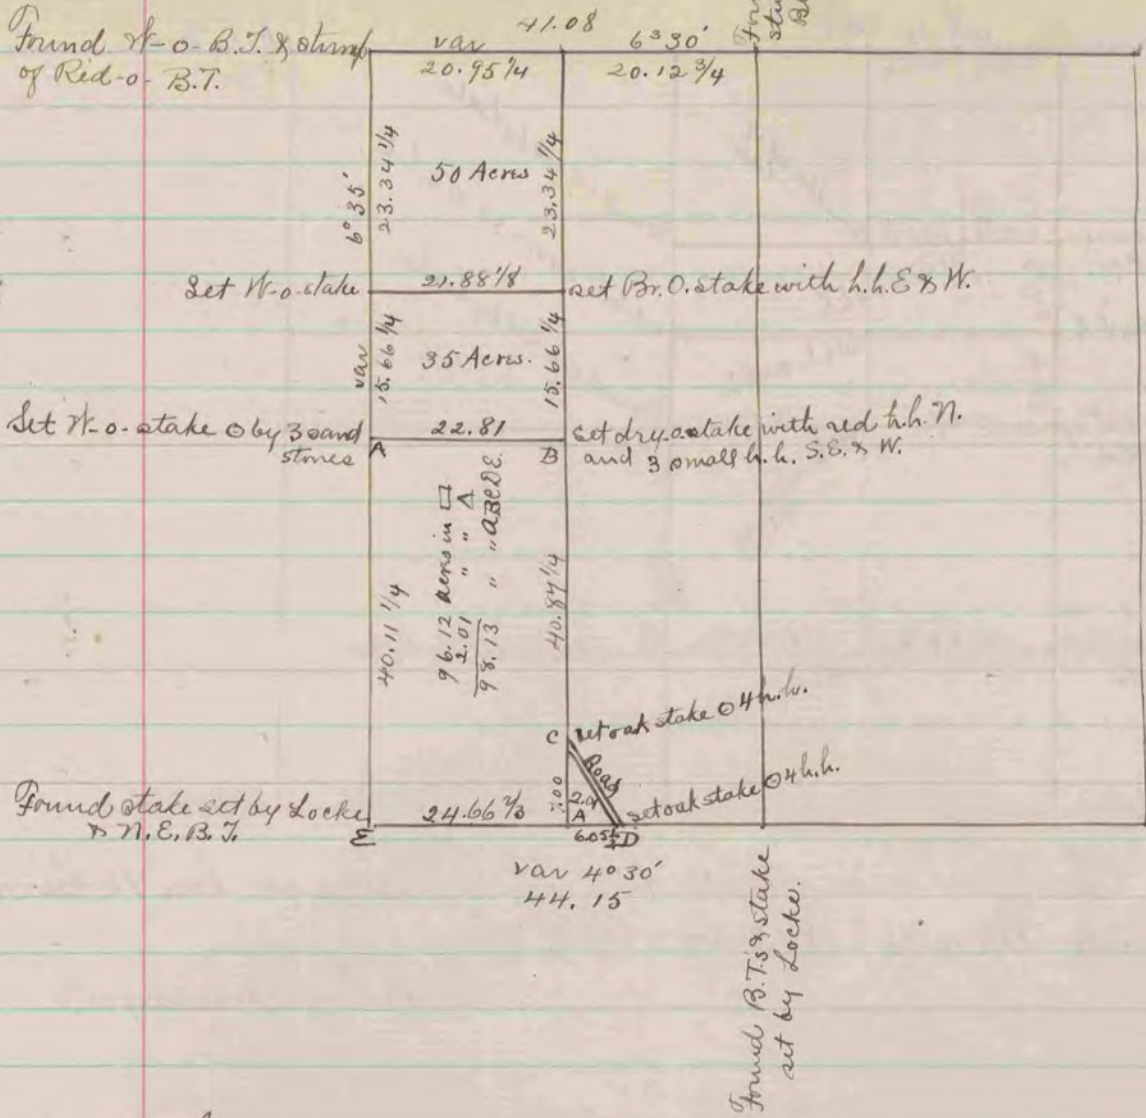 41.08
Found W-o-B.T. & stump
of Red-o-B.T.
var
6°30'
20.95 1/4
20.12 3/4
6°35'
23.34 1/4
50 Acres
23.34 1/4
Set W-o-stake
21.88 1/8
set Br. O. stake with h.h. E & W.
var
15.66 1/4
35 Acres.
15.66 1/4
Set W-o-stake ⊙ by 3 sand
stones
22.81
set dry-o-stake with red h.h. N.
and 3 small h.h. S.E. & W.
A
B
96.12 acres in □
2.01 " " Δ
98.13 " " ABCDE.
40.11 1/4
40.87 1/4
C
set oak stake ⊙ 4 h.h.
Road
7.00
2.01
A
set oak stake ⊙ 4 h.h.
Found stake set by Locke
& N.E. B.T.
24.66 2/3
E
D
var 4°30'
44.15
Found B.T.s & stake
set by Locke.